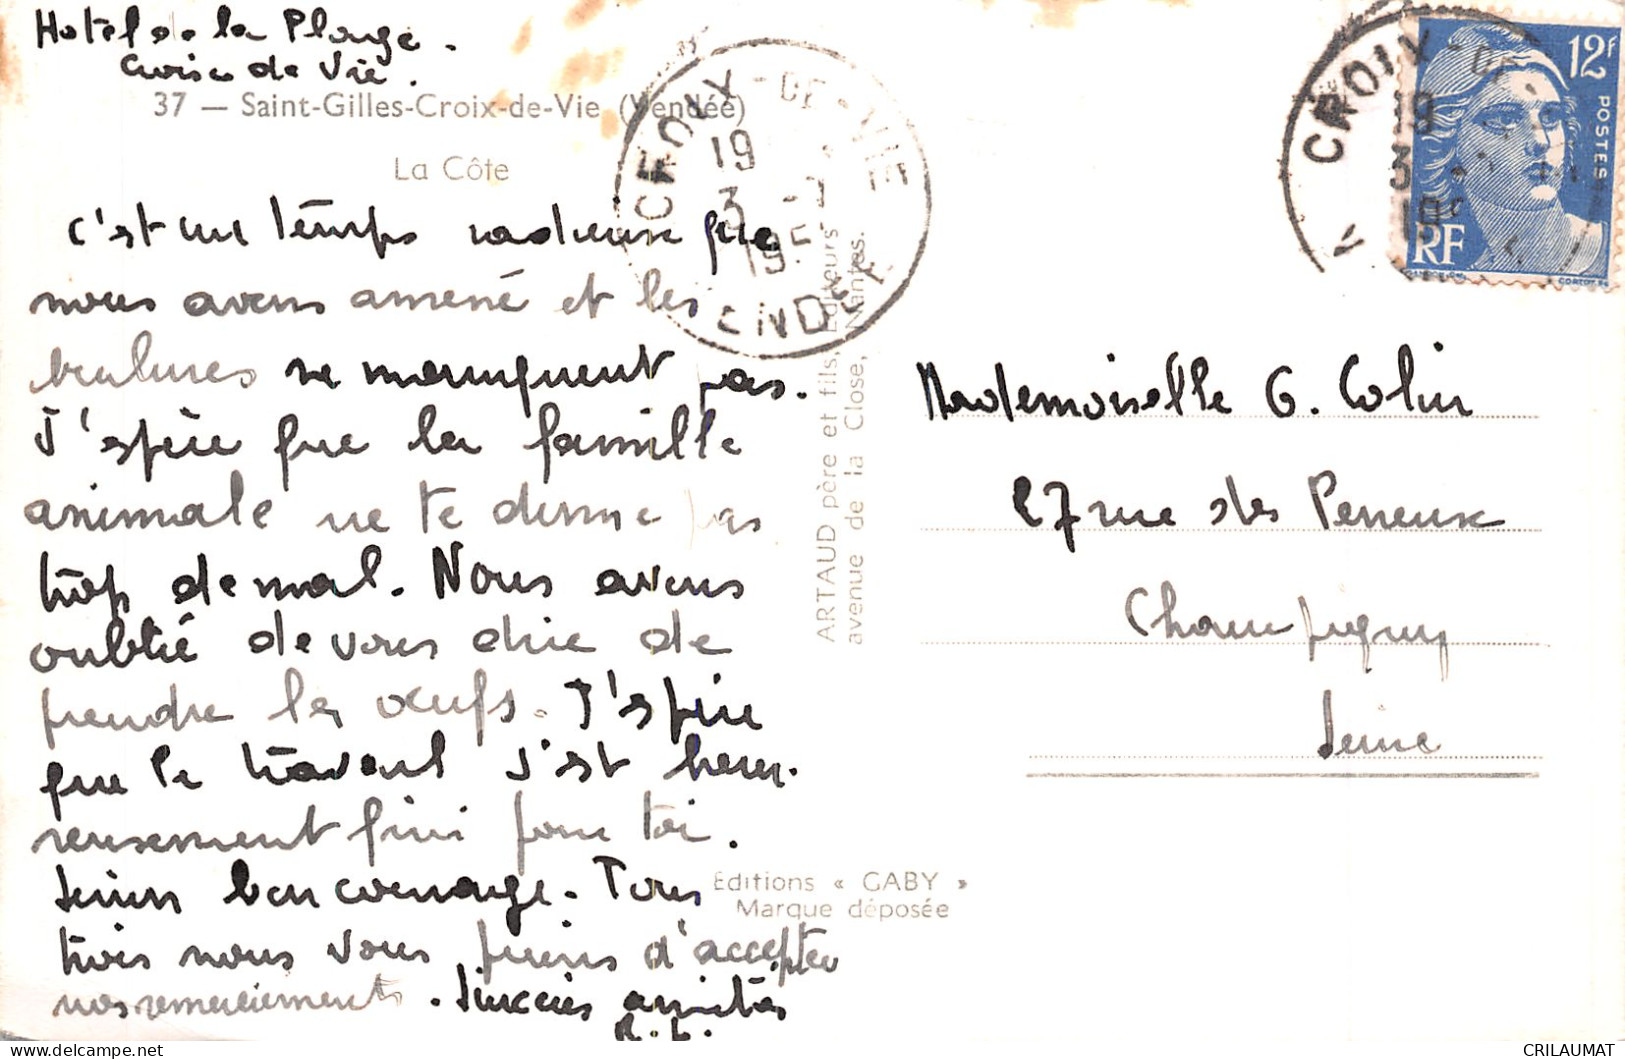 Hotel de la Plage.
Croix de Vie.
37 — Saint-Gilles-Croix-de-Vie (Vendée)
La Côte
C'est un temps radieux que
nous avons amené et les
ne manquent pas.
J'espère que la famille
animale ne te donne pas
trop de mal. Nous avons
oublié de vous dire de
prendre les œufs. J'espère
que le travail s'est heu-
reusement fini pour toi.
Sinon bon courage. Tous
trois nous vous prions d'accepter
nos remerciements. Sincères amitiés
R. L.
CROIX-DE-VIE
19
3 -
195
VENDÉE
ARTAUD père et fils, Éditeurs
avenue de la Close, Nantes.
Editions « GABY »
Marque déposée
CROIX-DE
19
3
19
V
12F
POSTES
RF
Mademoiselle G. Colin
27 rue des Perreux
Champigny
Seine
CRILAUMAT